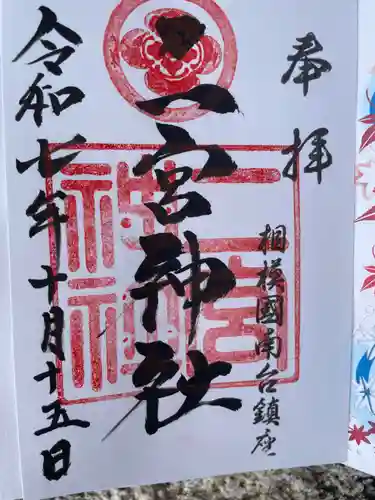 奉拝
相模國南台鎮座
二宮神社
二宮神社
令和七年十月十五日